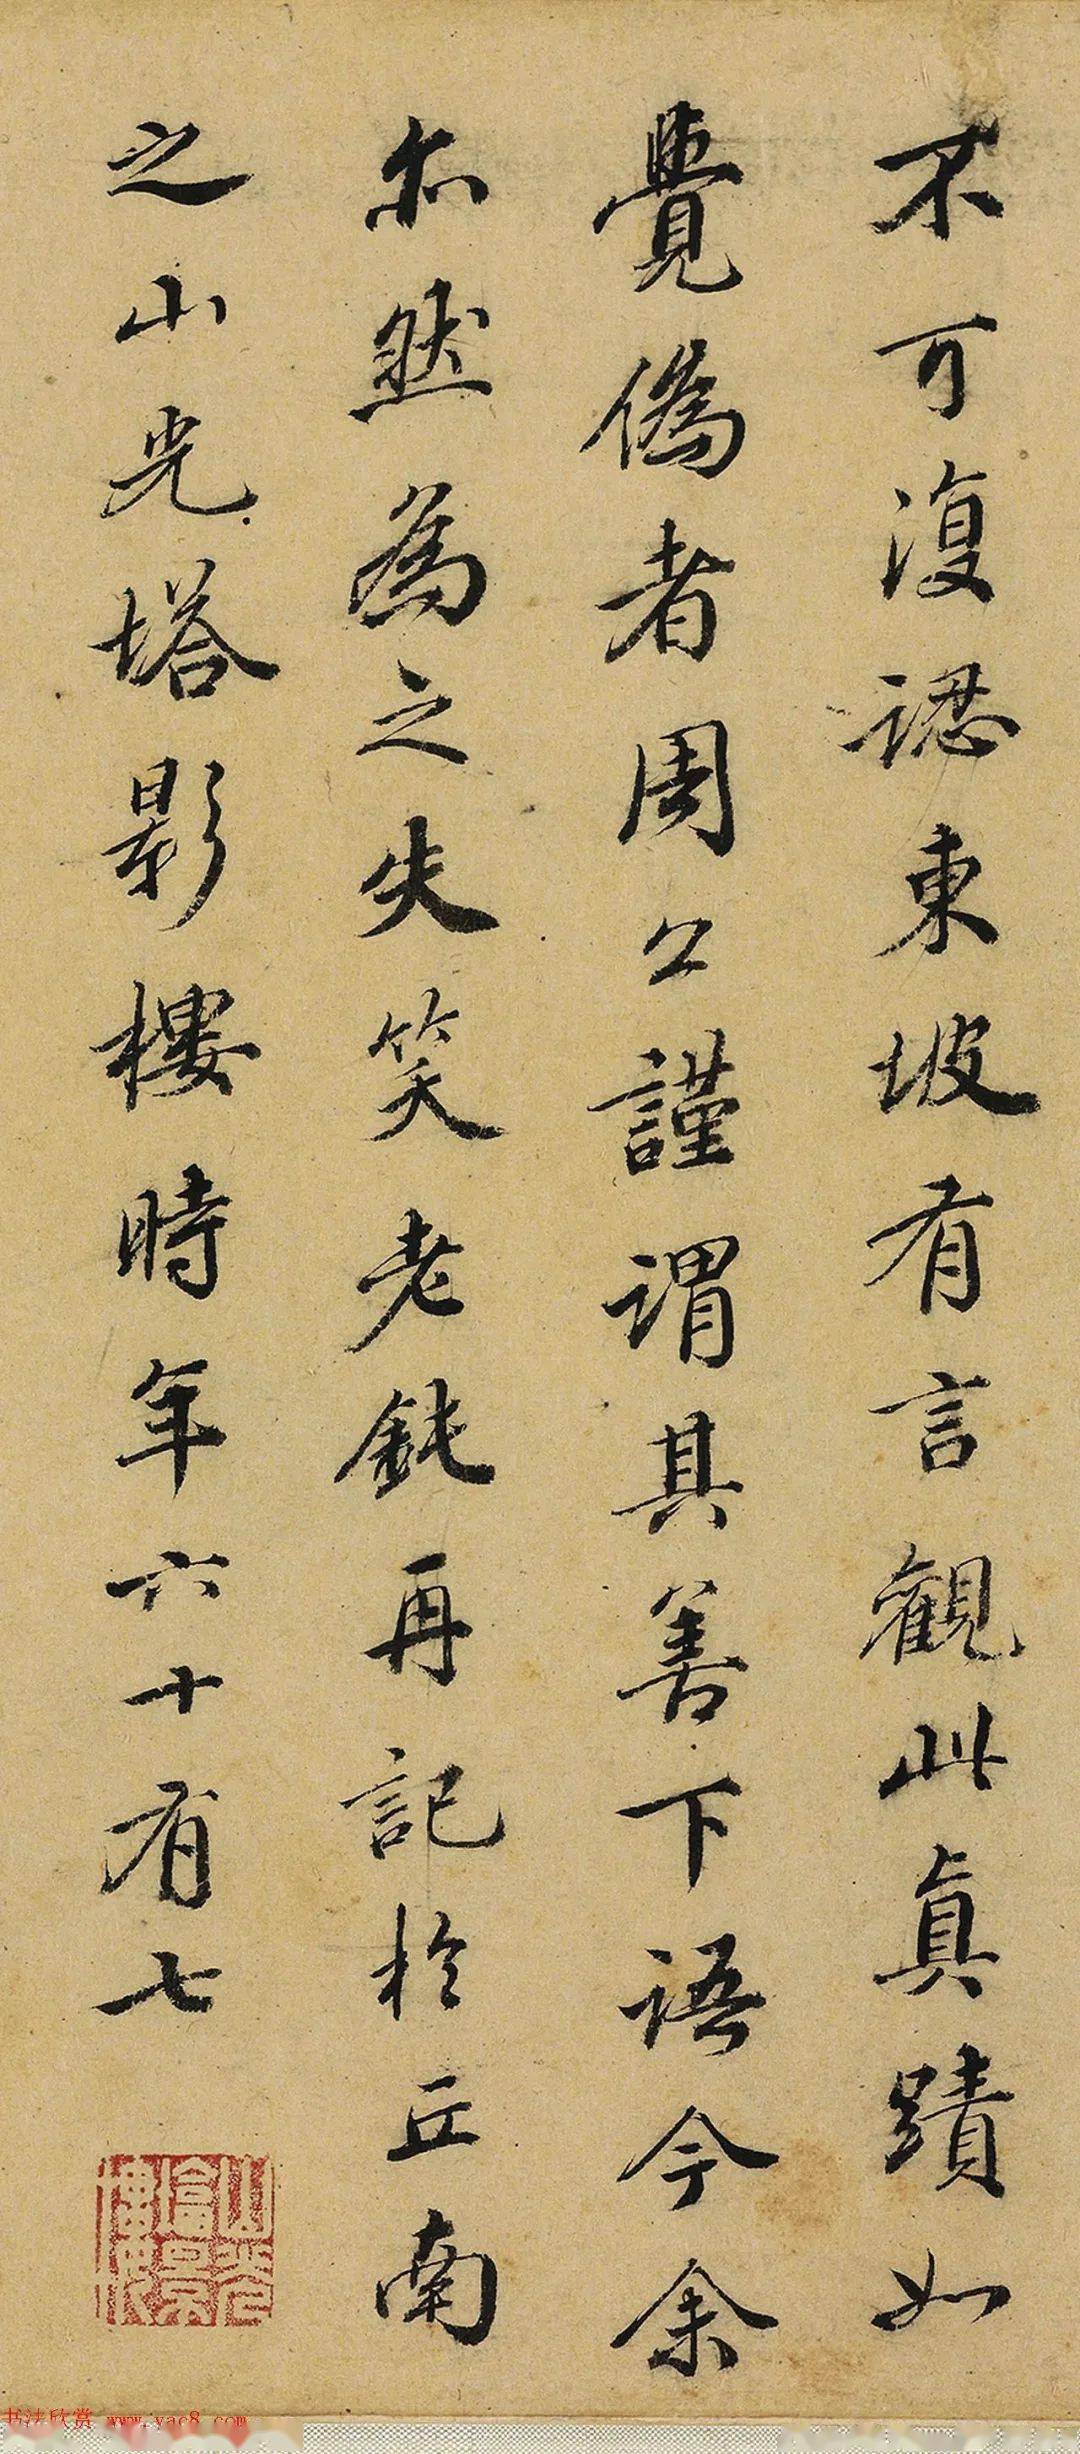 不可復認東坡有言觀此真蹟如
覺偽者周公謹謂其善下語今余
亦然為之失笑老鈍再記於丘南
之山光塔影樓時年六十有七
山光塔影樓
书法欣赏 www.yac8.com